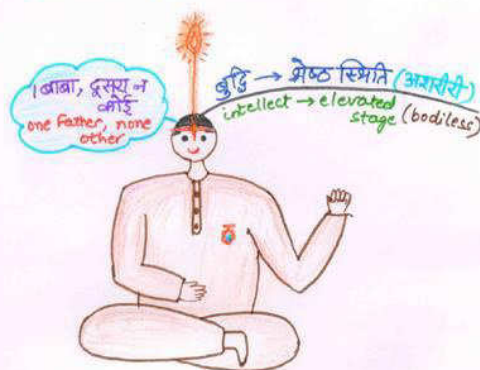 1 बाबा, दूसरा न
कोई
one Father, none
other
बुद्धि → श्रेष्ठ स्थिति (अशरीरी)
intellect → elevated
stage (bodiless)